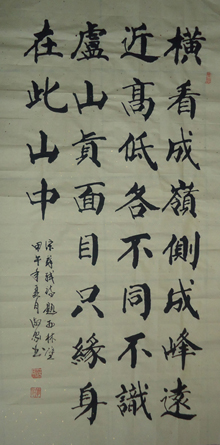 橫看成嶺側成峰遠
近髙低各不同不識
盧山真面目只緣身
在此山中
宋蘇軾詩題西林壁
甲午年夏月